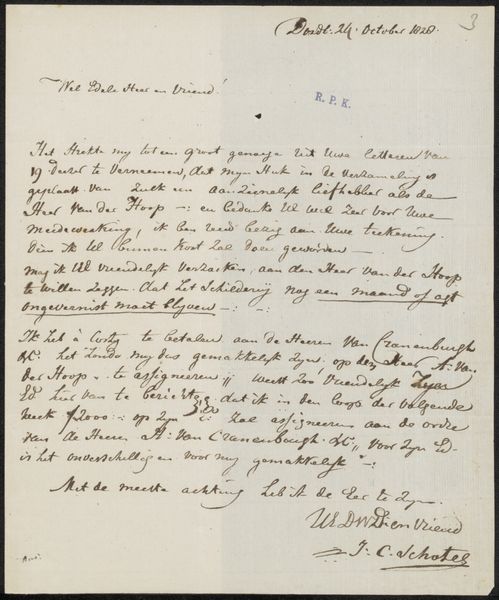 3
Dordt. 24. October 1828.
Wel Edele Heer en Vriend!
R.P.K.
Het strekte my tot een groot genoege uit Uwe letteren van
19 dezer te verneemen, dat myn stuk in de verzameling is
geplaatst van zulk een aanzienelyk liefhebber als de
Heer van der Hoop —: en bedanke UE wel zeer voor Uwe
medewerking, ik ben reed bezig aan Uwe teekening.
dien ik UE binnen kort zal doen geworden —
mag ik UE vriendelyk verzoeken, aan den Heer van der Hoop
te willen zeggen. dat het Schildery nog een maand of agt
ongevernist moet blyven — : — :
Ik heb à Costy te betalen aan de Heeren van Cranenburgh
& C. het zoude my dus gemakkelyk zyn, op den Heer A. Van
der Hoop te assigneeren „ weest zoo vriendelyk zyn
Ed hier van te berigten, dat ik in den loop der volgende
week ƒ2000 :– op zyn Ed zal assigneeren aan de ordre
van de Heeren H: Van Cranenburgh & C. „ voor zyn Ed–
is het onverschillig en voor my gemakkelyk —:
Met de meeste achting heb ik de Eer te zyn.
UEDWD en Vriend
J. C. Schotel